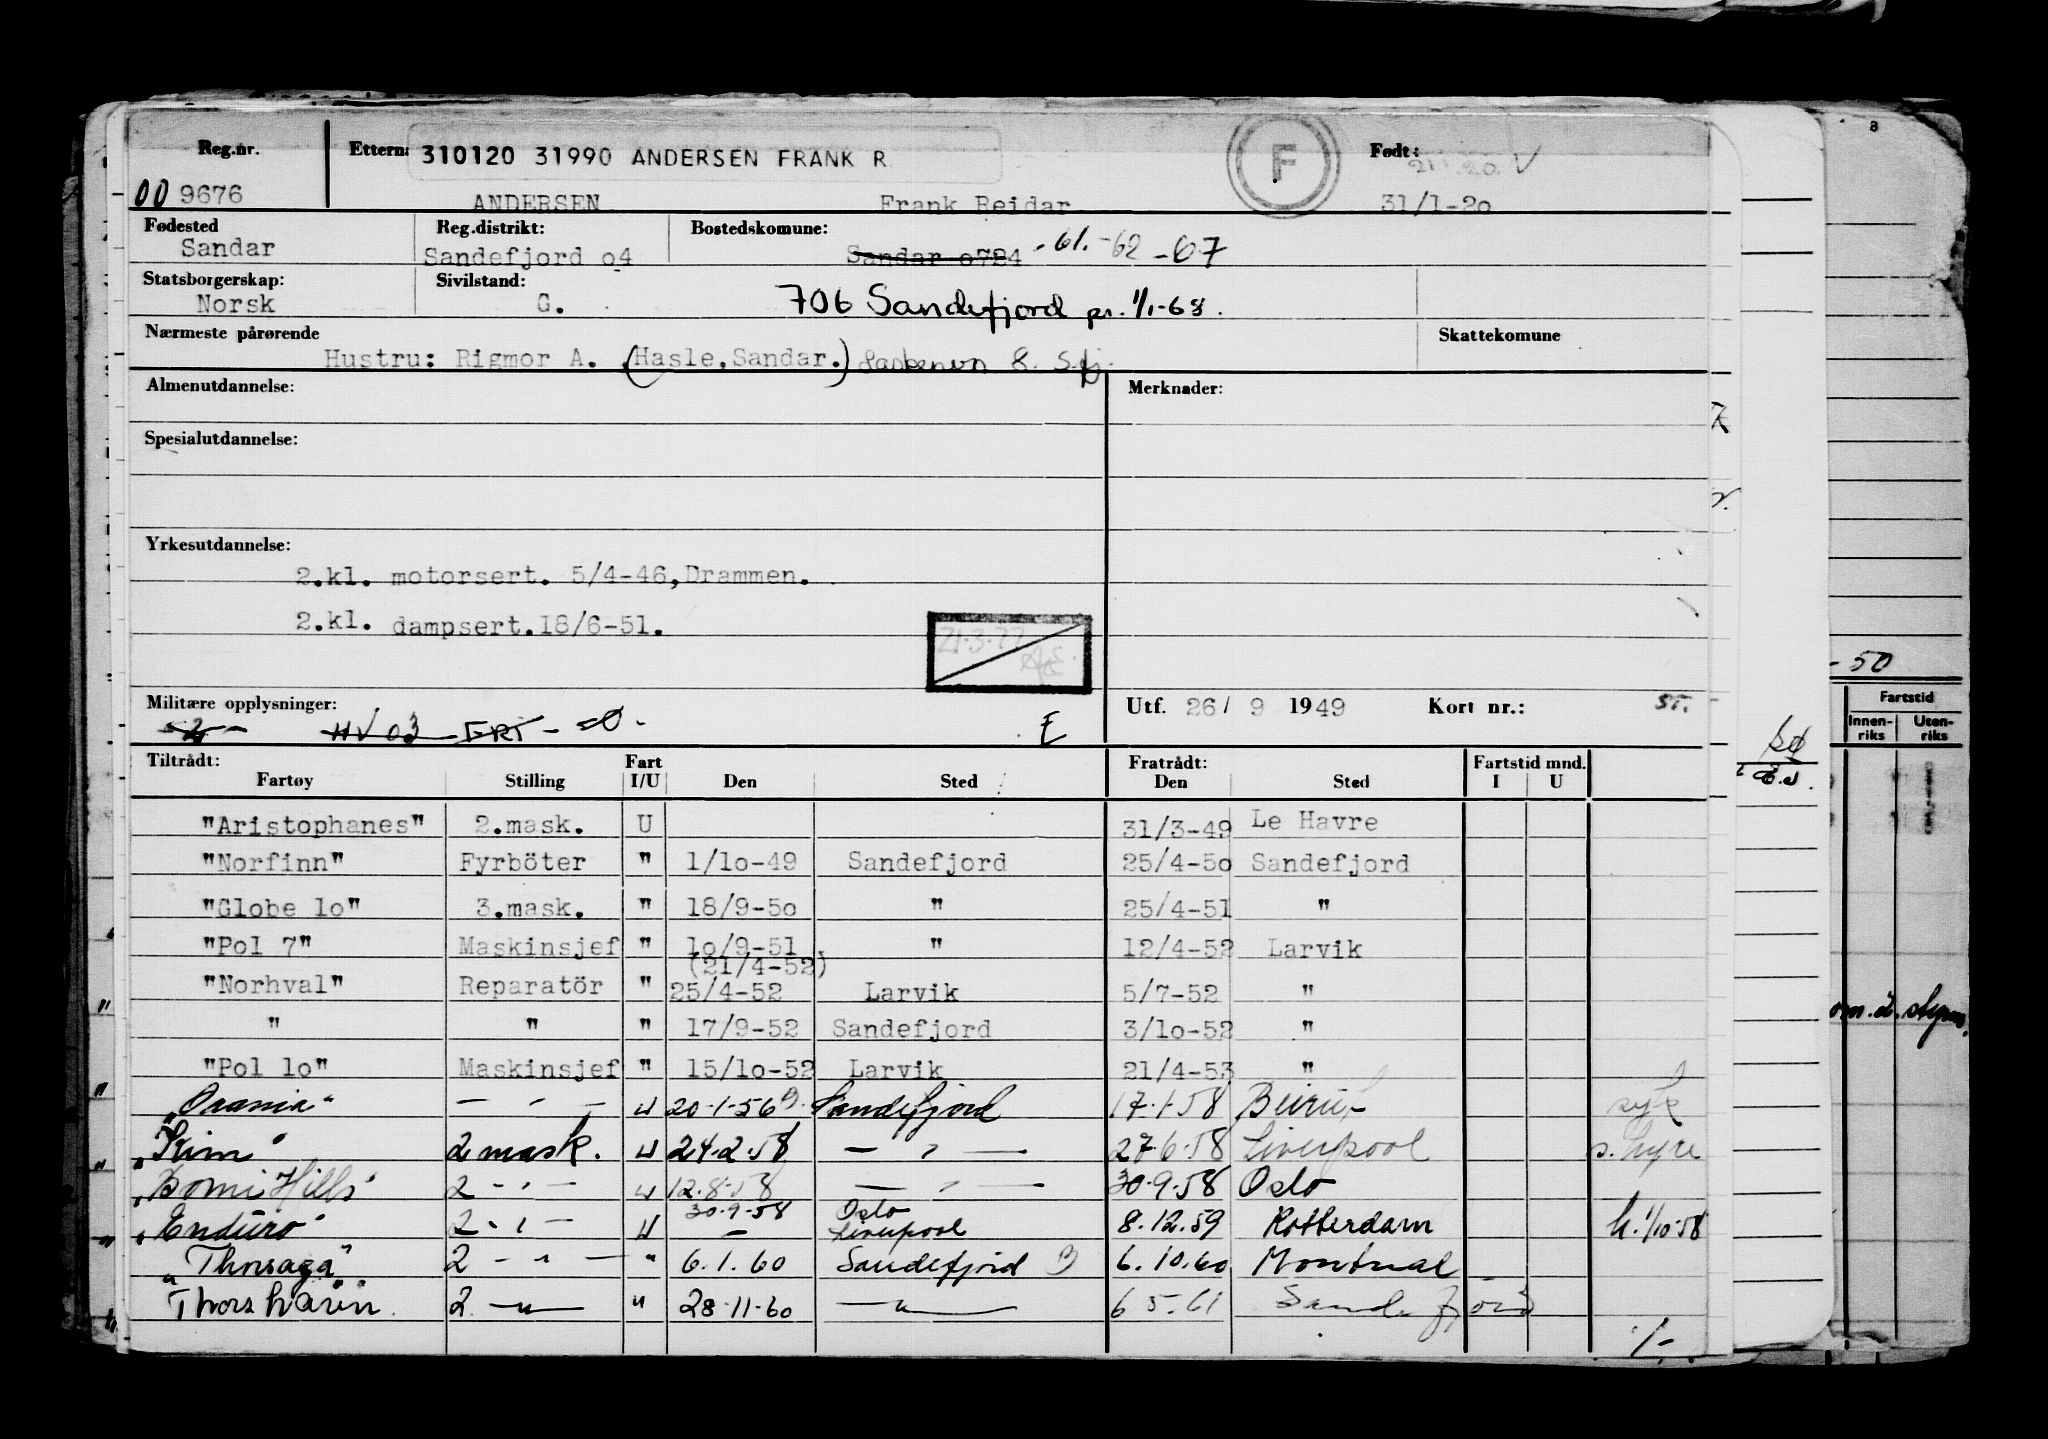 Reg.nr. Ettern: 310120 31990 ANDERSEN FRANK R F Født:
00 9676 ANDERSEN Frank Reidar 31/1-20
Fødested Reg.distrikt: Bostedskomune:
Sandar Sandefjord o4 Sandar o724 -61.-62-67
Statsborgerskap: Sivilstand:
Norsk G. 706 Sandefjord pr. 1/1-68.
Nærmeste pårørende Skattekomune
Hustru: Rigmor A. (Hasle,Sandar.) 8. Sfj.
Almenutdannelse: Merknader:
Spesialutdannelse:
Yrkesutdannelse:
2.kl. motorsert. 5/4-46,Drammen.
2.kl. dampsert.18/6-51.
21.3.77
Militære opplysninger: Utf. 26/ 9 1949 Kort nr.:
HV 03 E
Tiltrådt: Fart Fratrådt: Fartstid mnd.
Fartøy Stilling I/U Den Sted Den Sted I U
"Aristophanes" 2.mask. U 31/3-49 Le Havre
"Norfinn" Fyrböter " 1/1o-49 Sandefjord 25/4-5o Sandefjord
"Globe 1o" 3.mask. " 18/9-5o " 25/4-51 "
"Pol 7" Maskinsjef " 1o/9-51 " 12/4-52 Larvik
(21/4-52)
"Norhval" Reparatör " 25/4-52 Larvik 5/7-52 "
" " " 17/9-52 Sandefjord 3/1o-52 "
"Pol 1o" Maskinsjef " 15/1o-52 Larvik 21/4-53 "
"Orania" — " — U 20-1-56 Sandefjord 17-1-58 Beirut syk
"Kim" 2 mask. U 24-2-58 — " — 27-6-58 Liverpool s. hyre
"Bomi Hills" 2 — " — U 12-8-58 — " — 30-9-58 Oslo
30-9-58 Oslo
"Enduro" 2 - " — U — Liverpool 8.12.59 Rotterdam h. 1/10-58
"Thorsaga" 2 — " — " 6.1.60 Sandefjord B 6.10.60 Montreal
Thorshavn 2. — " — " 28-11-60 — " — 6 5.61 Sandefjord
- 50
Fartstid
Innen-riks Uten-riks